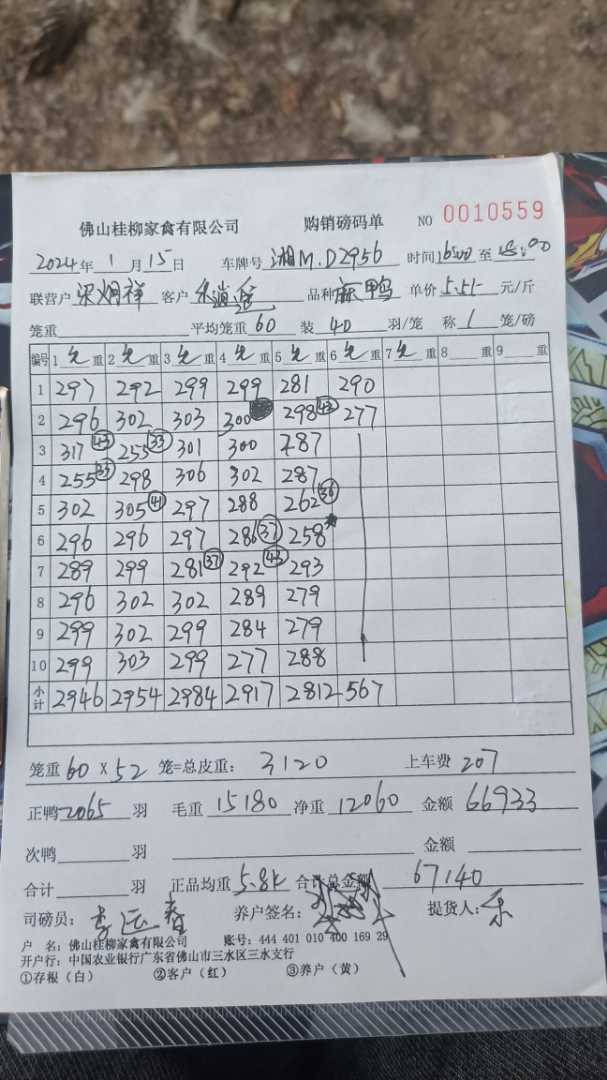 佛山桂柳家禽有限公司 购销磅码单 NO 0010559
2024年 1 月 15 日 车牌号 湘M.D2956 时间 16:00 至 18:00
联营户 梁炯祥 客户 品种 麻鸭 单价 5.55 元/斤
笼重 平均笼重 60 装 40 羽/笼 称 1 笼/磅
编号 1 毛 重 2 毛 重 3 毛 重 4 毛 重 5 毛 重 6 毛 重 7 毛 重 8 重 9 重
1 297 292 299 299 281 290
2 296 302 303 300 298 (42) 277
3 317 (43) 255 (33) 301 300 287
4 255 (35) 298 306 302 287
5 302 305 (41) 297 288 262 (36)
6 296 296 297 286 (37) 258
7 289 299 281 (37) 292 (43) 293
8 296 302 302 289 279
9 299 302 299 284 279
10 299 303 299 277 288
小计 2946 2954 2984 2917 2812 567
笼重 60 × 52 笼=总皮重: 3120 上车费 207
正鸭 2065 羽 毛重 15180 净重 12060 金额 66933
次鸭 羽 金额
合计 羽 正品均重 5.84 合计总金额 67140
司磅员: 李运春 养户签名: 提货人:
户 名: 佛山桂柳家禽有限公司 账号: 444 401 010 400 169 29
开户行: 中国农业银行广东省佛山市三水区三水支行
①存根(白) ②客户(红) ③养户(黄)